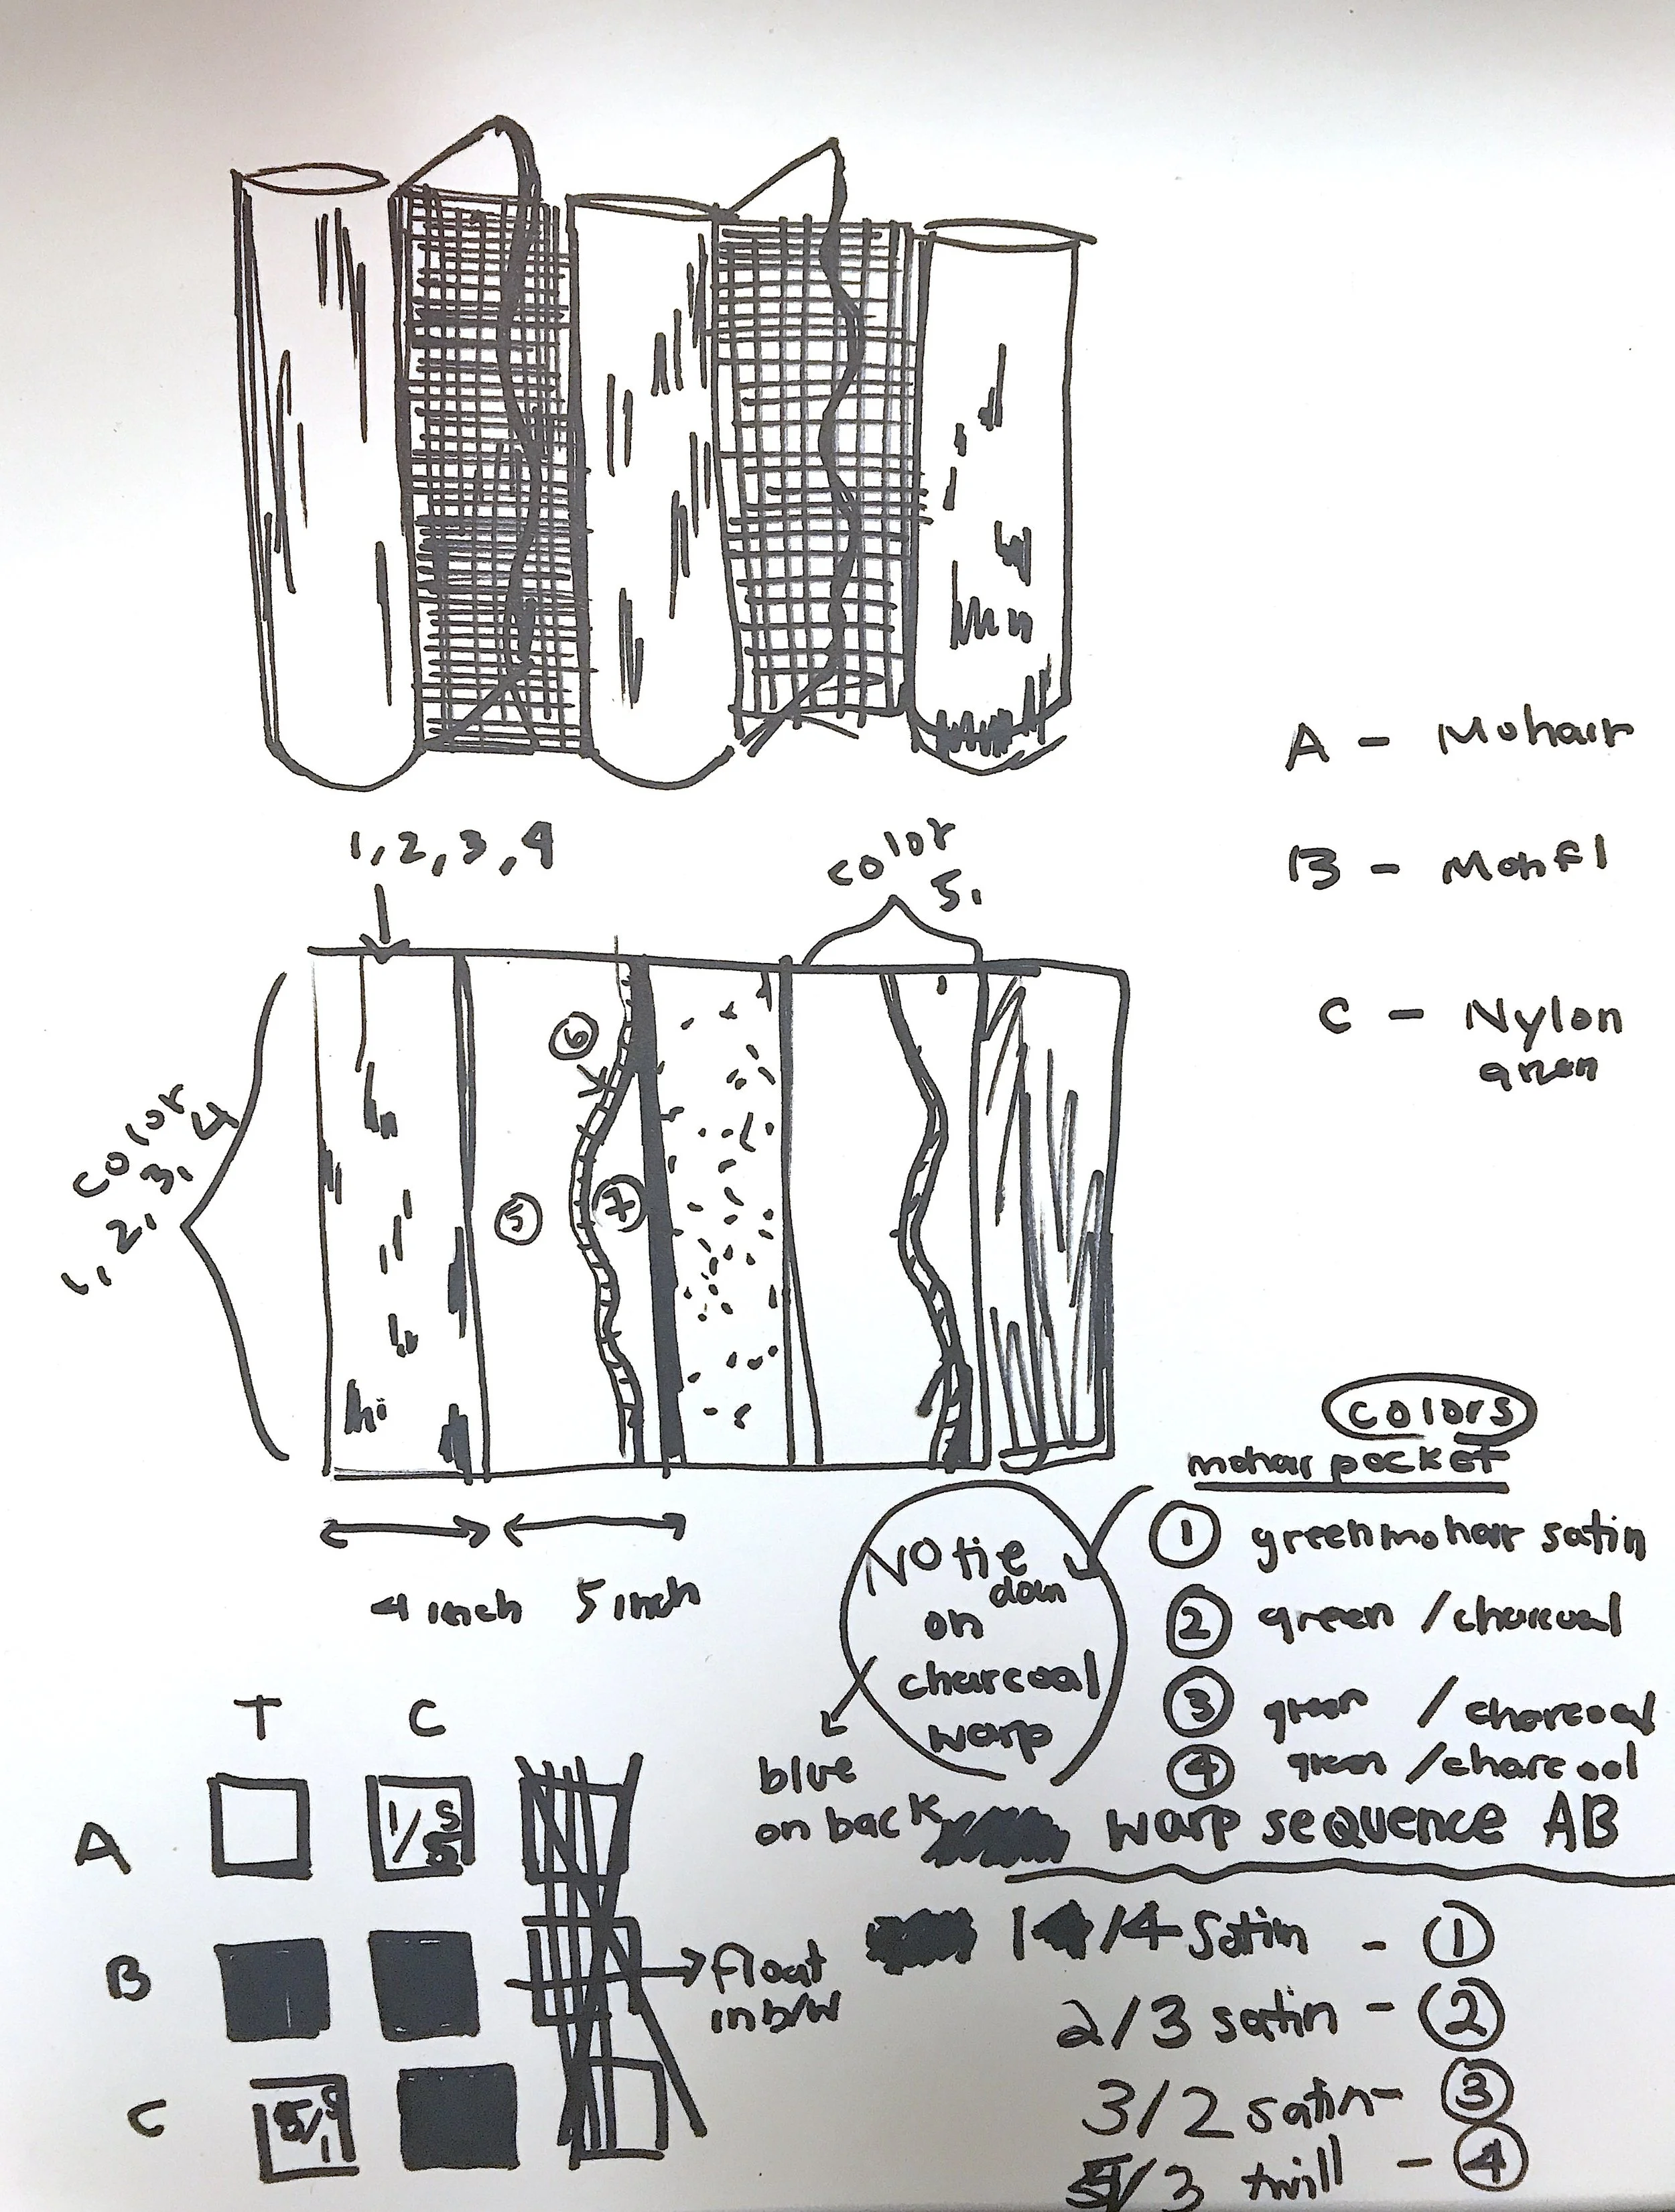 A - Mohair
B - Monfl
C - Nylon
green
1, 2, 3, 4
color
5,
color
1, 2, 3, 4
6
5
7
4 inch 5 inch
colors
mohair pocket
1 green mohair satin
2 green / charcoal
3 green / charcoal
4 green / charcoal
NO tie
down
on
charcoal
warp
blue
on back
warp sequence AB
1/4 satin - 1
2/3 satin - 2
3/2 satin - 3
/3 twill - 4
T C
A
1/5
B
float
in b/w
C
5/1